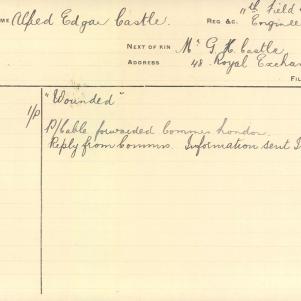 ME Alfred Edgar Castle. REG &C. 11th Field
Enginee
NEXT OF KIN Mr G. H. Castle
ADDRESS 48 Royal Exchan
FIL
"Wounded"
P/Cable forwarded Commrs London.
Reply from Commrs. Information sent